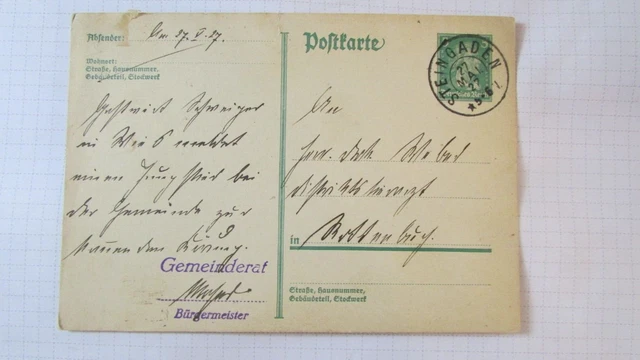 Absender: Den 27. V. 27.
Wohnort:
Straße, Hausnummer,
Gebäudeteil, Stockwerk
Gastwirt Schweiger
in Wies meldet
einen Jungstier bei
der Gemeinde zur
Körung.
Gemeinderat
Bürgermeister
Postkarte
STEINGADEN
27
An
Herrn
Distriktstierarzt
in Rottenbuch.
Straße, Hausnummer,
Gebäudeteil, Stockwerk